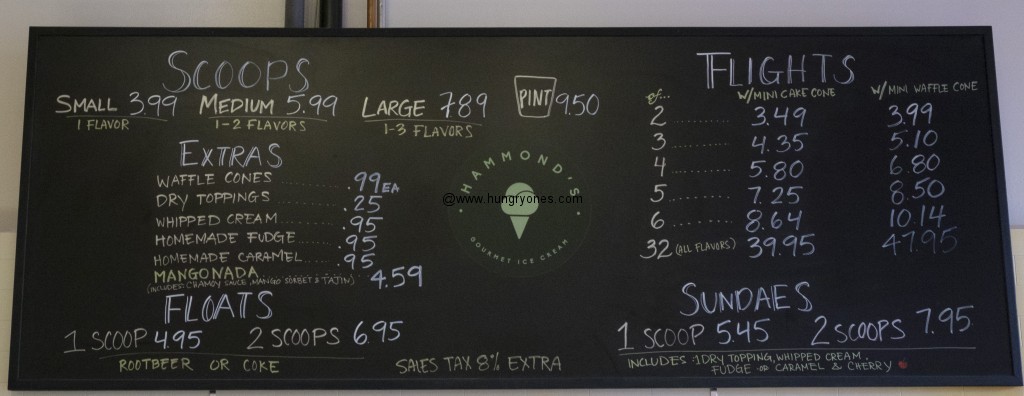 SCOOPS
SMALL 3.99 MEDIUM 5.99 LARGE 7.89 PINT 9.50
1 FLAVOR 1-2 FLAVORS 1-3 FLAVORS
EXTRAS
WAFFLE CONES .......... .99 EA
DRY TOPPINGS .......... .25
WHIPPED CREAM .......... .95
HOMEMADE FUDGE ....... .95
HOMEMADE CARAMEL ..... .95
MANGONADA .......... 4.59
(INCLUDES: CHAMOY SAUCE, MANGO SORBET & TAJIN)
FLOATS
1 SCOOP 4.95 2 SCOOPS 6.95
ROOTBEER OR COKE
HAMMOND'S
GOURMET ICE CREAM
@www.hungryones.com
SALES TAX 8% EXTRA
FLIGHTS
W/MINI CAKE CONE W/MINI WAFFLE CONE
2 .......... 3.49 3.99
3 .......... 4.35 5.10
4 .......... 5.80 6.80
5 .......... 7.25 8.50
6 .......... 8.64 10.14
32 (ALL FLAVORS) 39.95 47.95
SUNDAES
1 SCOOP 5.45 2 SCOOPS 7.95
INCLUDES 1 DRY TOPPING, WHIPPED CREAM,
FUDGE OR CARAMEL & CHERRY